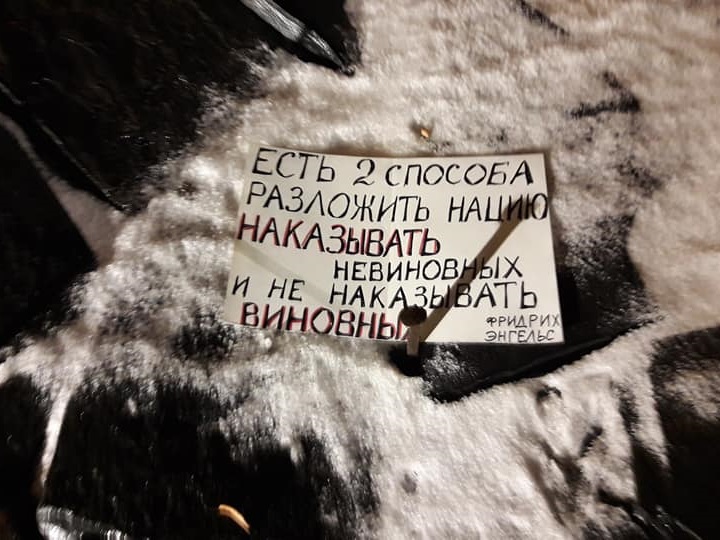 ЕСТЬ 2 СПОСОБА
РАЗЛОЖИТЬ НАЦИЮ
НАКАЗЫВАТЬ
НЕВИНОВНЫХ
И НЕ НАКАЗЫВАТЬ
ВИНОВНЫХ
ФРИДРИХ
ЭНГЕЛЬС